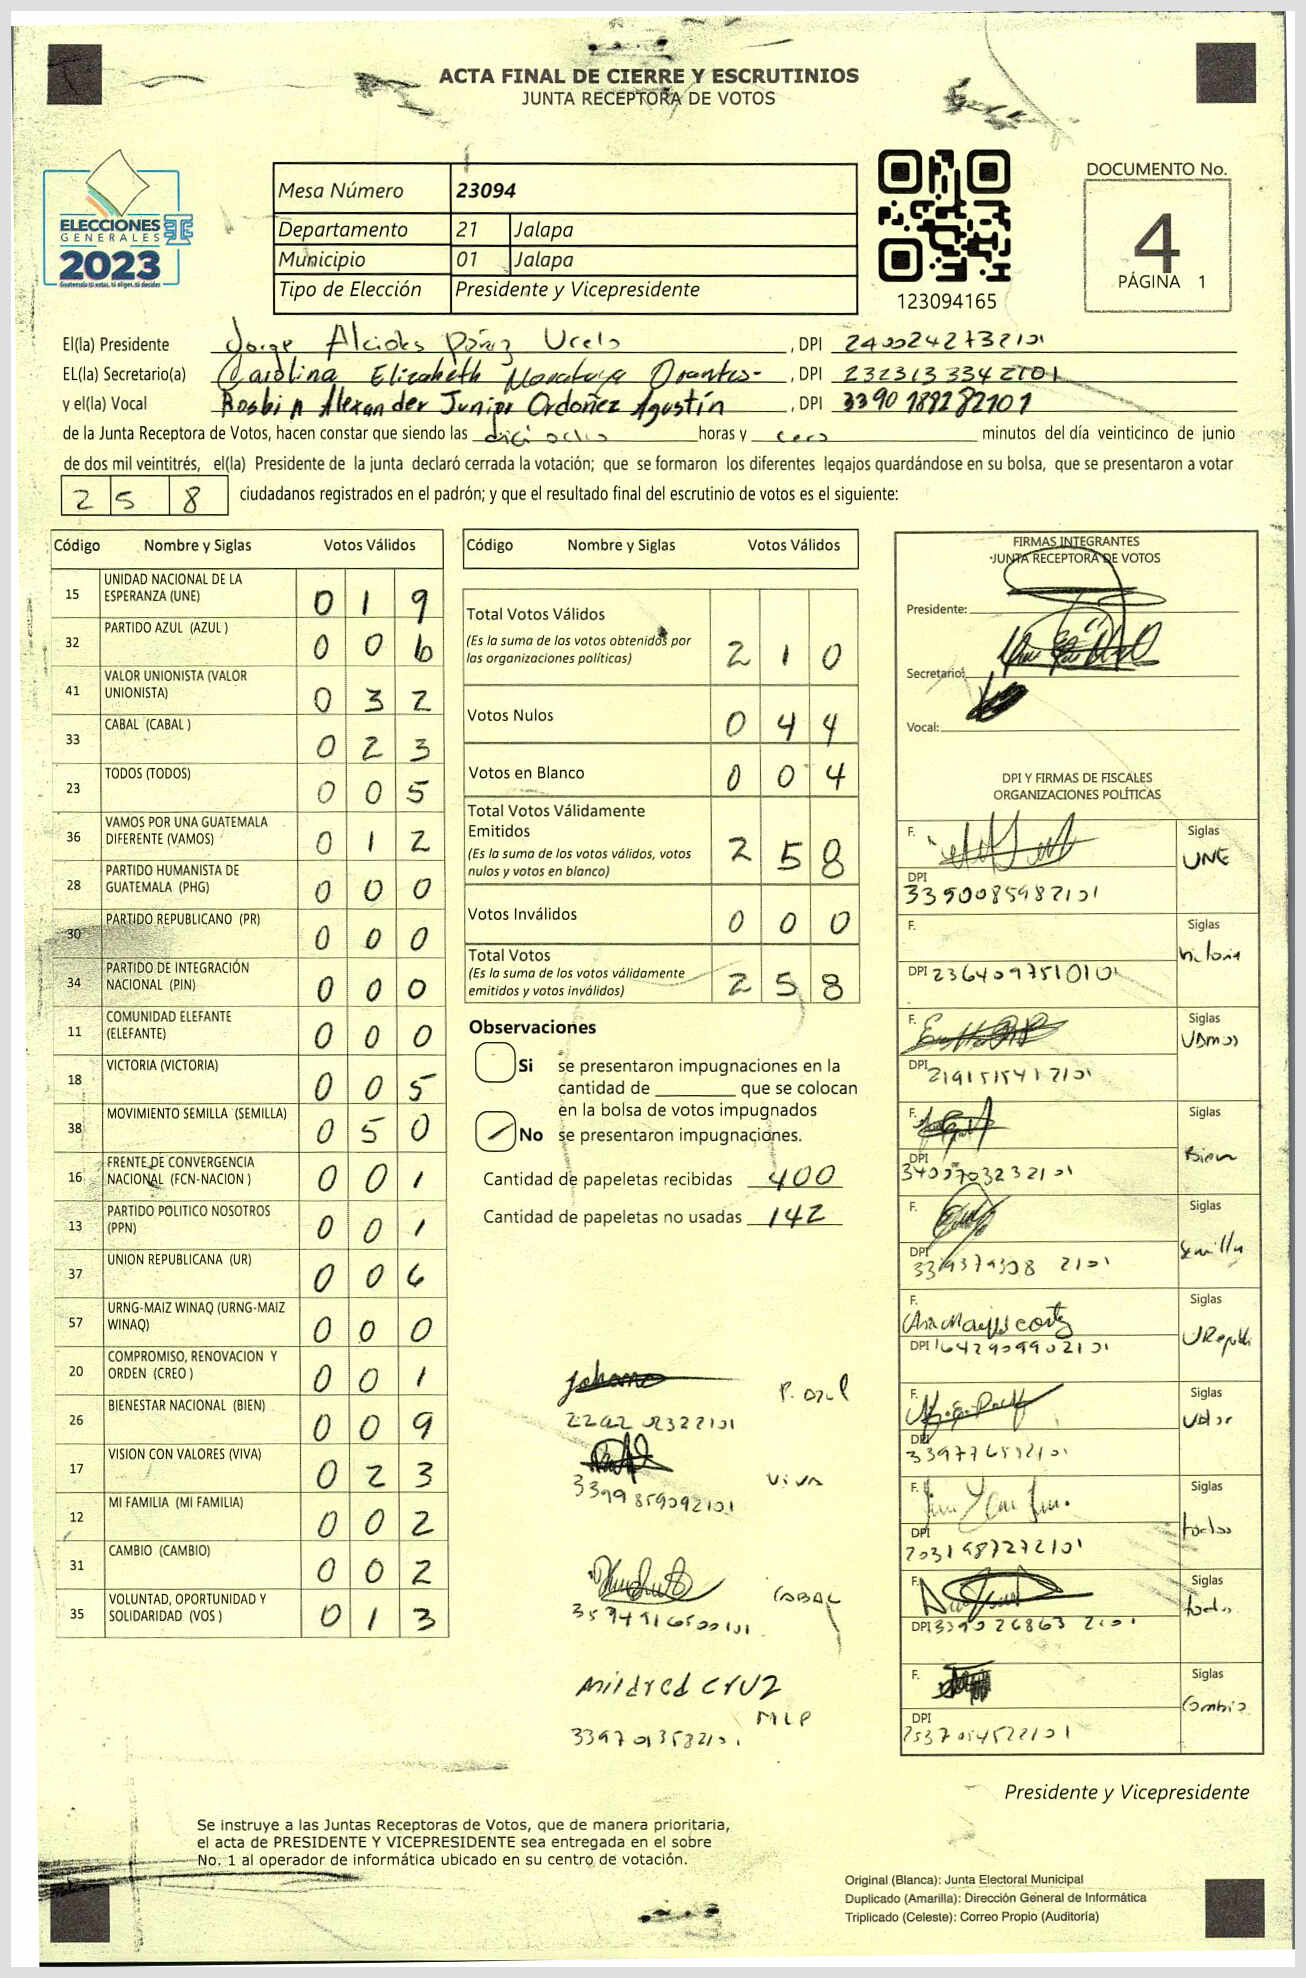 ACTA FINAL DE CIERRE Y ESCRUTINIOS
JUNTA RECEPTORA DE VOTOS
ELECCIONES
GENERALES
2023
Guatemala tú votas, tú eliges, tú decides
Mesa Número 23094
Departamento 21 Jalapa
Municipio 01 Jalapa
Tipo de Elección Presidente y Vicepresidente
123094165
DOCUMENTO No.
4
PÁGINA 1
El(la) Presidente Jorge Alcides Pérez , DPI 2400242732101
EL(la) Secretario(a) Carolina Elizabeth Orantes- , DPI 2323133342101
y el(la) Vocal Alexander Junior Ordoñez Agustín , DPI 3390189282101
de la Junta Receptora de Votos, hacen constar que siendo las horas y cero minutos del día veinticinco de junio
de dos mil veintitrés, el(la) Presidente de la junta declaró cerrada la votación; que se formaron los diferentes legajos quardándose en su bolsa, que se presentaron a votar
2 5 8 ciudadanos registrados en el padrón; y que el resultado final del escrutinio de votos es el siguiente:
Código Nombre y Siglas Votos Válidos
15 UNIDAD NACIONAL DE LA ESPERANZA (UNE) 0 1 9
32 PARTIDO AZUL (AZUL ) 0 0 6
41 VALOR UNIONISTA (VALOR UNIONISTA) 0 3 2
33 CABAL (CABAL ) 0 2 3
23 TODOS (TODOS) 0 0 5
36 VAMOS POR UNA GUATEMALA DIFERENTE (VAMOS) 0 1 2
28 PARTIDO HUMANISTA DE GUATEMALA (PHG) 0 0 0
30 PARTIDO REPUBLICANO (PR) 0 0 0
34 PARTIDO DE INTEGRACIÓN NACIONAL (PIN) 0 0 0
11 COMUNIDAD ELEFANTE (ELEFANTE) 0 0 0
18 VICTORIA (VICTORIA) 0 0 5
38 MOVIMIENTO SEMILLA (SEMILLA) 0 5 0
16 FRENTE DE CONVERGENCIA NACIONAL (FCN-NACION ) 0 0 1
13 PARTIDO POLITICO NOSOTROS (PPN) 0 0 1
37 UNION REPUBLICANA (UR) 0 0 6
57 URNG-MAIZ WINAQ (URNG-MAIZ WINAQ) 0 0 0
20 COMPROMISO, RENOVACION Y ORDEN (CREO ) 0 0 1
26 BIENESTAR NACIONAL (BIEN) 0 0 9
17 VISION CON VALORES (VIVA) 0 2 3
12 MI FAMILIA (MI FAMILIA) 0 0 2
31 CAMBIO (CAMBIO) 0 0 2
35 VOLUNTAD, OPORTUNIDAD Y SOLIDARIDAD (VOS ) 0 1 3
Código Nombre y Siglas Votos Válidos
Total Votos Válidos 2 1 0
(Es la suma de los votos obtenidos por las organizaciones políticas)
Votos Nulos 0 4 4
Votos en Blanco 0 0 4
Total Votos Válidamente Emitidos 2 5 8
(Es la suma de los votos válidos, votos nulos y votos en blanco)
Votos Inválidos 0 0 0
Total Votos 2 5 8
(Es la suma de los votos válidamente emitidos y votos inválidos)
Observaciones
Si se presentaron impugnaciones en la
cantidad de ________ que se colocan
en la bolsa de votos impugnados
No se presentaron impugnaciones.
Cantidad de papeletas recibidas 400
Cantidad de papeletas no usadas 142
Johana P. azul
3399859092101 VIVA
CABAL
Mildred Cruz
MLP
FIRMAS INTEGRANTES
JUNTA RECEPTORA DE VOTOS
Presidente:
Secretario:
Vocal:
DPI Y FIRMAS DE FISCALES
ORGANIZACIONES POLÍTICAS
F. Siglas UNE
DPI 3350085982101
F. Siglas Victoria
DPI 2364097510101
F. Siglas Vamos
DPI 2191515412101
F. Siglas Bien
DPI
F. Siglas Semilla
DPI
F. Siglas URepubli
DPI 1642909902101
F. Siglas Valor
DPI
F. Siglas todos
DPI 2031987272101
F. Siglas todos
DPI 3390268632101
F. Siglas Cambio
DPI
Presidente y Vicepresidente
Se instruye a las Juntas Receptoras de Votos, que de manera prioritaria,
el acta de PRESIDENTE Y VICEPRESIDENTE sea entregada en el sobre
No. 1 al operador de informática ubicado en su centro de votación.
Original (Blanca): Junta Electoral Municipal
Duplicado (Amarilla): Dirección General de Informática
Triplicado (Celeste): Correo Propio (Auditoría)